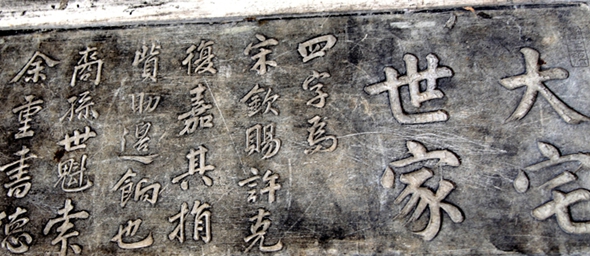 大宅
世家
四字為
宋欽賜許克
復嘉其捐
貲助邊餉也
裔孫世魁索
余重書德